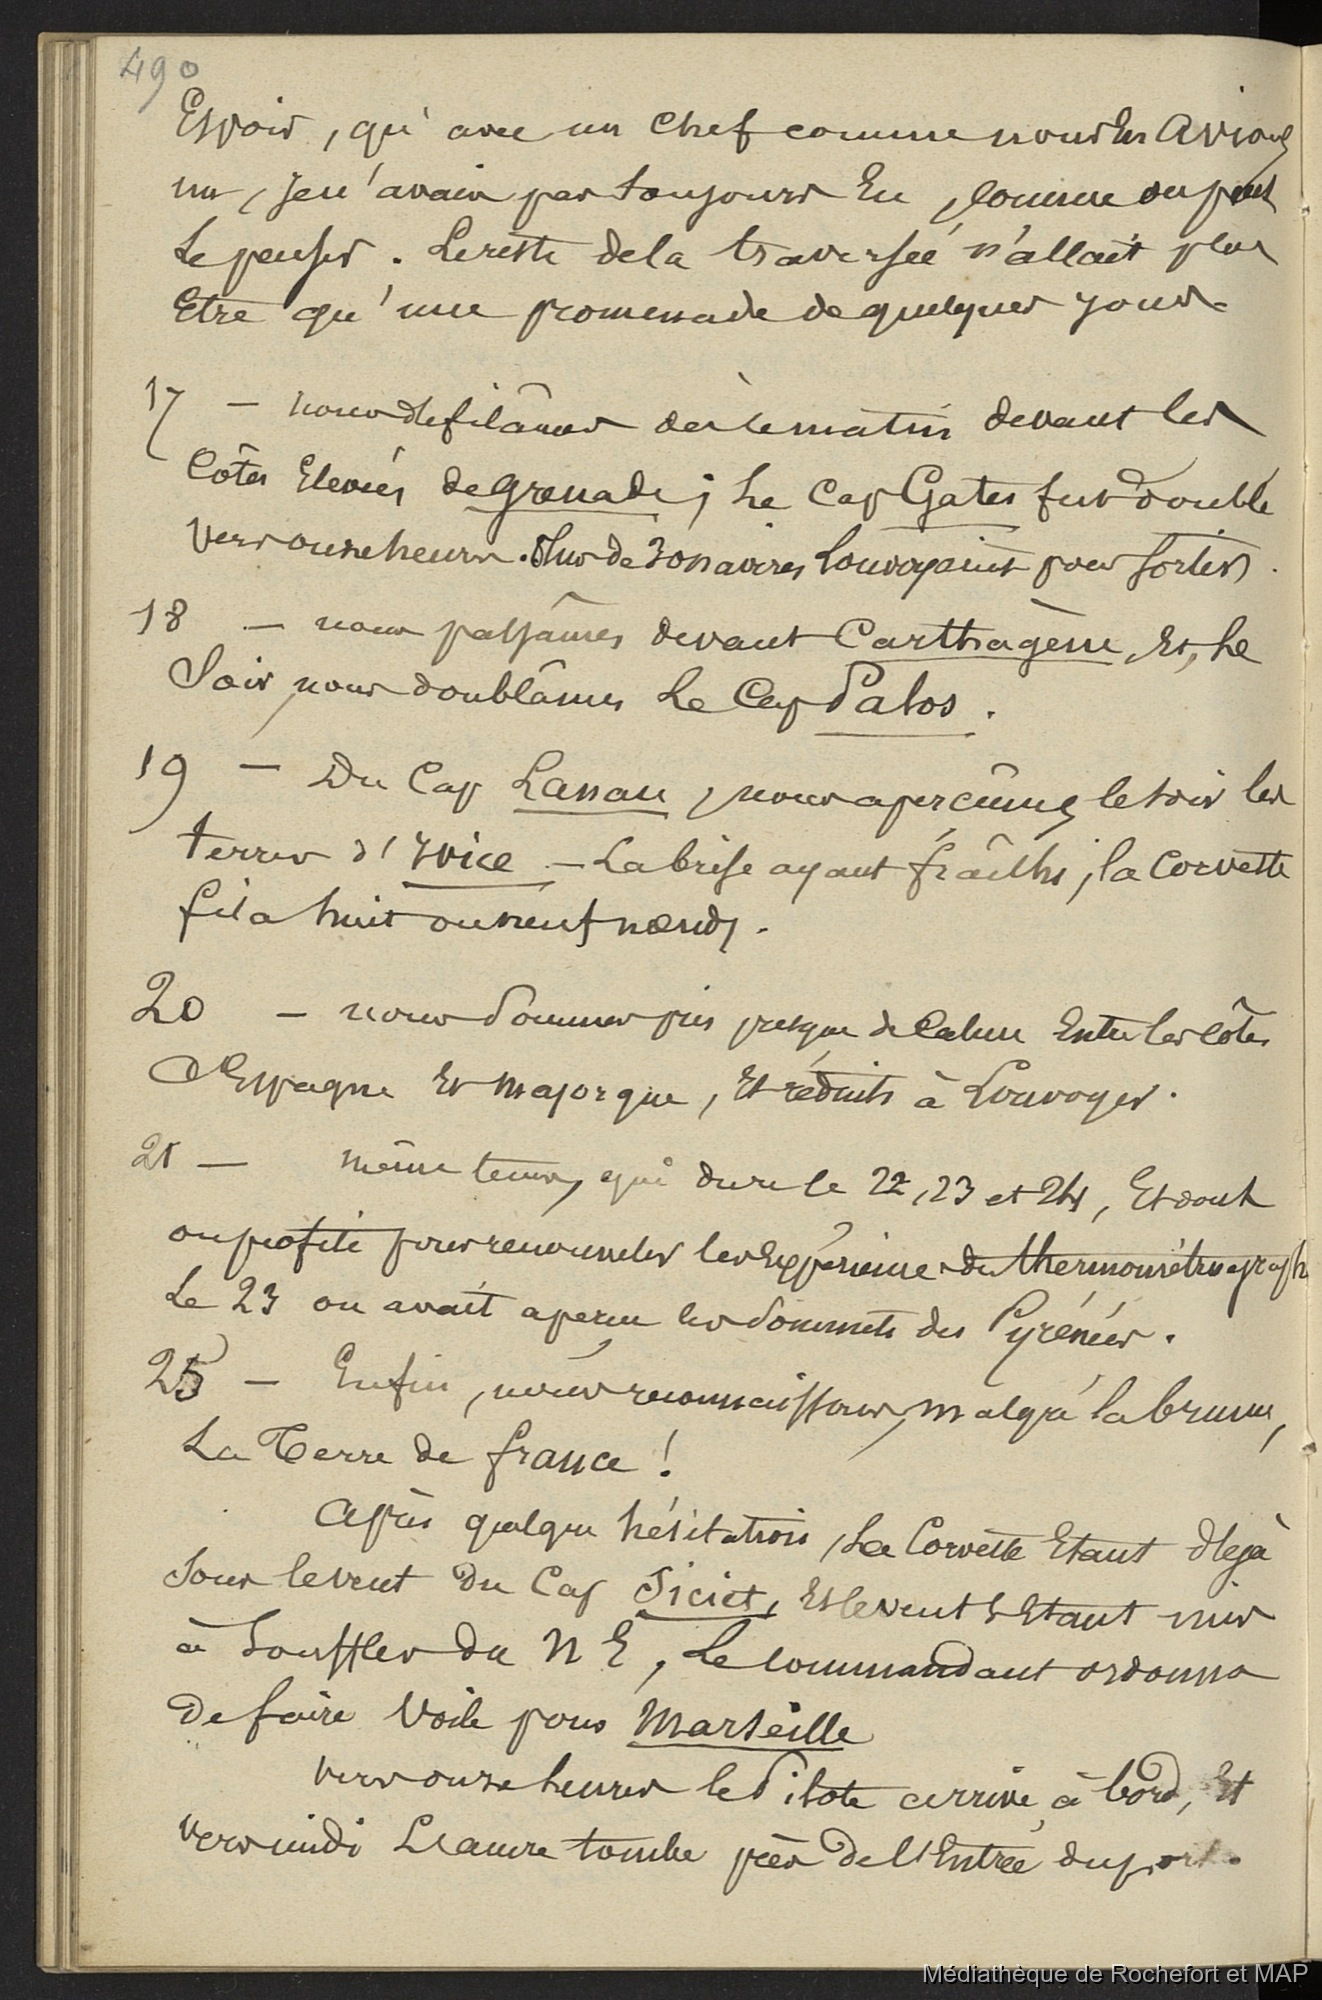 490
Espoir, qu'avec un Chef comme nous En Avions
un, Je n'avais pas toujours Eu, comme on peut
Le penser. Le reste de la traversée n'allait plus
Etre qu'une promenade de quelques jours.
17 — nous defilâmes dès le matin devant les
Côtes Elevées de Grenade; Le Cap Gates fut doublé
Vers onze heures. Plus de 30 navires Louvoyaient pour Sortir.
18 — nous passâmes devant Carthagène, Et, Le
Soir, nous doublâmes Le Cap Palos.
19 — Du Cap, nous aperçûmes le soir les
terres d'Ivice — La brise ayant fraîchi, la Corvette
fila huit ou neuf nœuds.
20 — nous Sommes pris presque de Calme Entre les côtes
d'Espagne Et Majorque, Et réduits à Louvoyer.
21 — même tems, qui dure le 22, 23 et 24, Et dont
on profite pour renouveler les Expériences du thermométrograph
Le 23 on avait aperçu les Sommets des Pyrénées.
25 — Enfin, nous reconnaissons, malgré la brume,
La Terre de france!
Après quelque hésitation, La Corvette Etant déjà
Sous le vent du Cap Siciet, Et le vent s'Etant mis
à Souffler du N E, Le commandant ordonna
De faire Voile pour Marseille
Vers onze heures le Pilote arrive à bord, Et
Vers midi L'ancre tombe près De l'Entrée du port.
Médiathèque de Rochefort et MAP